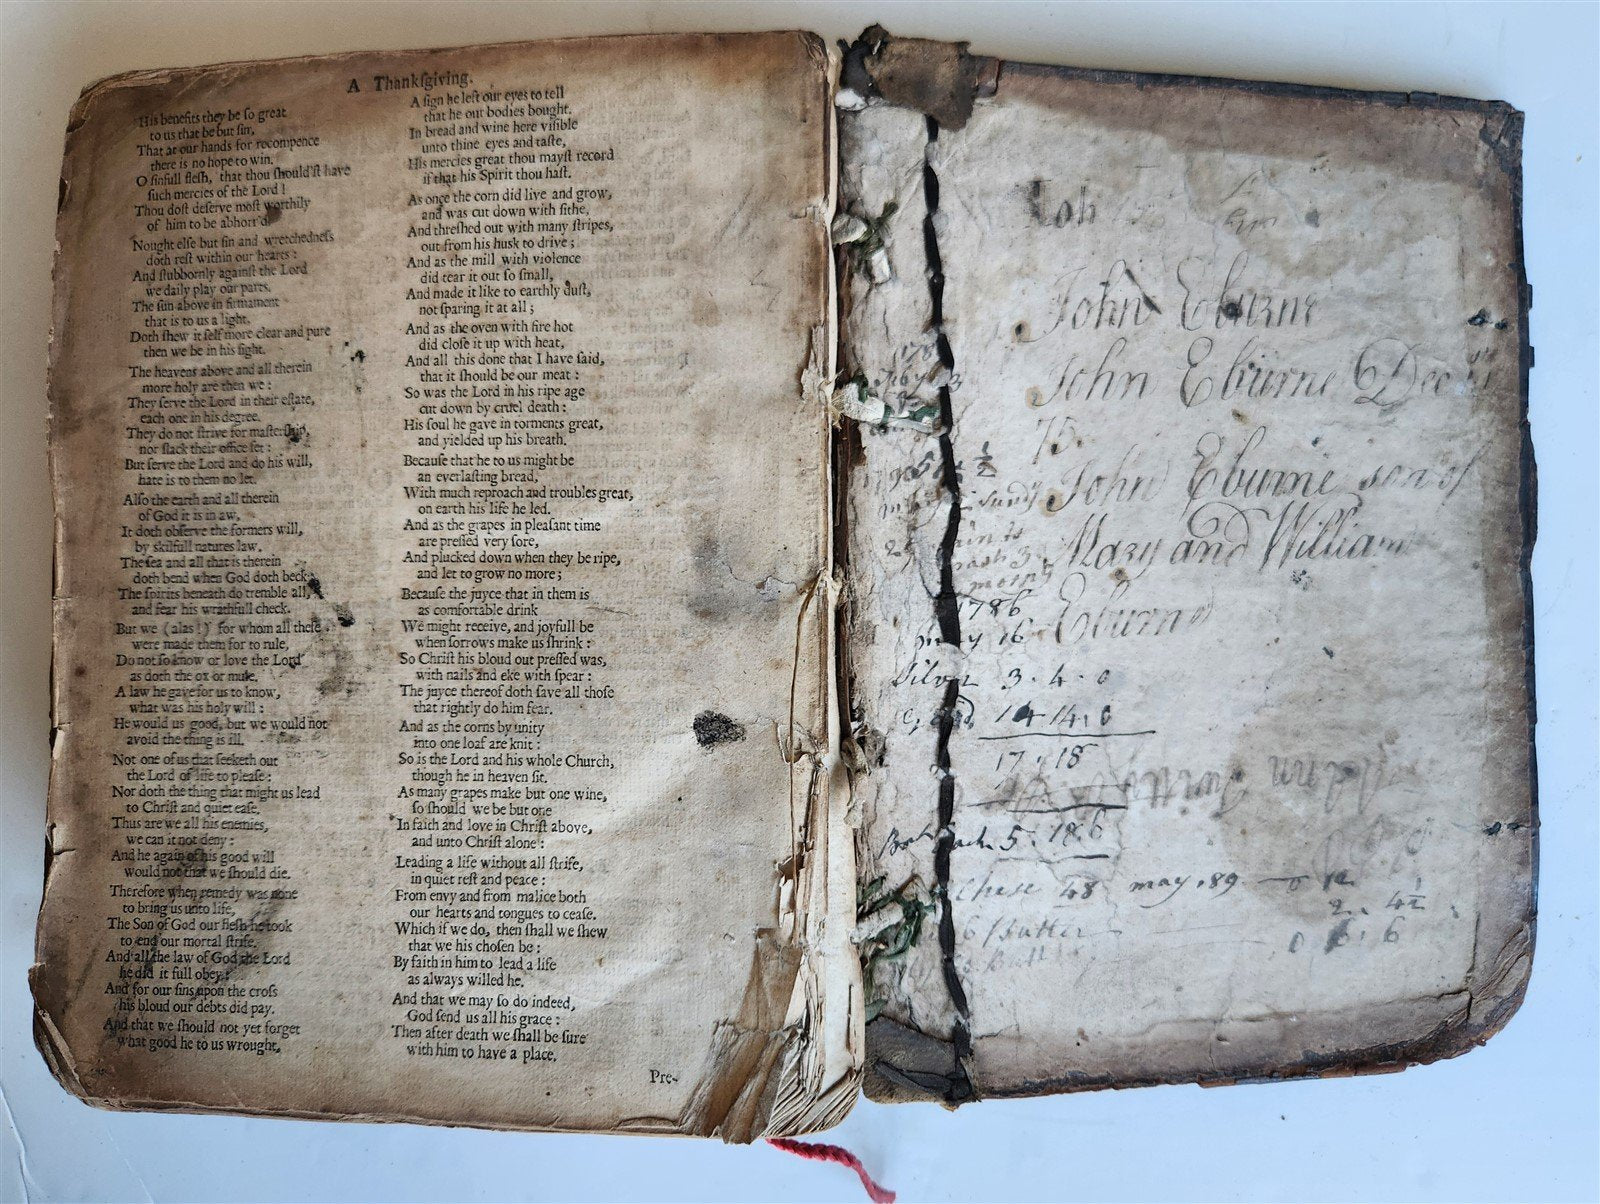 A Thankſgiving.
His benefits they be ſo great
to us that be but ſin,
That at our hands for recompence
there is no hope to win.
O ſinfull fleſh, that thou ſhould'ſt have
ſuch mercies of the Lord!
Thou doſt deſerve moſt worthily
of him to be abhorr'd.
Nought elſe but ſin and wretchedneſs
doth reſt within our hearts:
And ſtubbornly againſt the Lord
we daily play our parts.
The ſun above in firmament
that is to us a light,
Doth ſhew it ſelf more clear and pure
then we be in his ſight.
The heavens above and all therein
more holy are then we:
They ſerve the Lord in their eſtate,
each one in his degree.
They do not ſtrive for maſterſhip,
nor ſlack their office ſet:
But ſerve the Lord and do his will,
hate is to them no let.
Alſo the earth and all therein
of God it is in aw,
It doth obſerve the formers will,
by skilfull natures law.
The ſea and all that is therein
doth bend when God doth beck,
The ſpirits beneath do tremble all,
and fear his wrathfull check.
But we (alas!) for whom all theſe
were made them for to rule,
Do not ſo know or love the Lord
as doth the ox or mule.
A law he gave for us to know,
what was his holy will:
He would us good, but we would not
avoid the thing is ill.
Not one of us that ſeeketh out
the Lord of life to pleaſe:
Nor doth the thing that might us lead
to Chriſt and quiet eaſe.
Thus are we all his enemies,
we can it not deny:
And he again of his good will
would not that we ſhould die.
Therefore when remedy was none
to bring us unto life,
The Son of God our fleſh he took
to end our mortal ſtrife.
And all the law of God the Lord
he did it full obey:
And for our ſins upon the croſs
his bloud our debts did pay.
And that we ſhould not yet forget
what good he to us wrought,
A ſign he left our eyes to tell
that he our bodies bought.
In bread and wine here viſible
unto thine eyes and taſte,
His mercies great thou mayſt record
if that his Spirit thou haſt.
As once the corn did live and grow,
and was cut down with ſithe,
And threſhed out with many ſtripes,
out from his husk to drive;
And as the mill with violence
did tear it out ſo ſmall,
And made it like to earthly duſt,
not ſparing it at all;
And as the oven with fire hot
did cloſe it up with heat,
And all this done that I have ſaid,
that it ſhould be our meat:
So was the Lord in his ripe age
cut down by cruel death:
His ſoul he gave in torments great,
and yielded up his breath.
Becauſe that he to us might be
an everlaſting bread,
With much reproach and troubles great,
on earth his life he led.
And as the grapes in pleaſant time
are preſſed very ſore,
And plucked down when they be ripe,
and let to grow no more;
Becauſe the juyce that in them is
as comfortable drink
We might receive, and joyfull be
when ſorrows make us ſhrink:
So Chriſt his bloud out preſſed was,
with nails and eke with ſpear:
The juyce thereof doth ſave all thoſe
that rightly do him fear.
And as the corns by unity
into one loaf are knit:
So is the Lord and his whole Church,
though he in heaven ſit.
As many grapes make but one wine,
ſo ſhould we be but one
In faith and love in Chriſt above,
and unto Chriſt alone:
Leading a life without all ſtrife,
in quiet reſt and peace:
From envy and from malice both
our hearts and tongues to ceaſe.
Which if we do, then ſhall we ſhew
that we his choſen be:
By faith in him to lead a life
as always willed he.
And that we may ſo do indeed,
God ſend us all his grace:
Then after death we ſhall be ſure
with him to have a place.
Pre-
Joh
John Eburne
John Eburne Dec
75
John Eburne son of
Mary and William
Eburne
1786
may 16
Silver 3. 4. 0
14 14. 0
17. 18
5. 18. 6
Chese 48 may 89 0 12
2. 4½
6 / Butter 0 6. 6